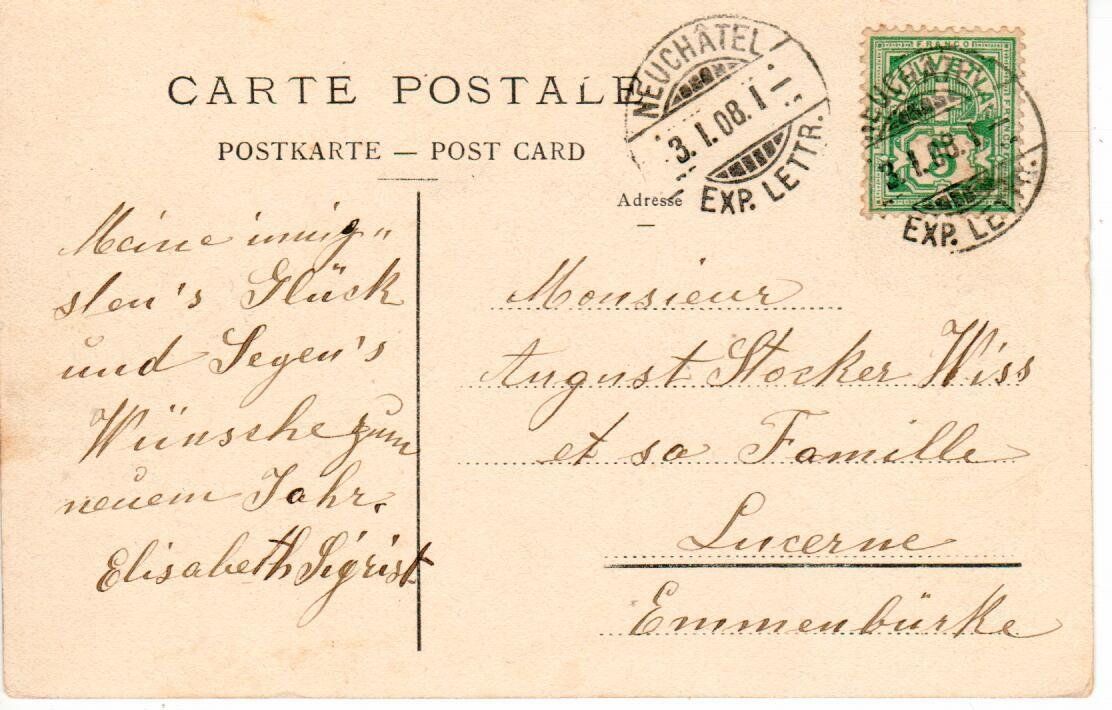 CARTE POSTALE
POSTKARTE — POST CARD
NEUCHÂTEL
3.I.08.I
EXP. LETTR.
FRANCO
NEUCHÂTEL
3.I.08.I
EXP. LETTR.
5
Adresse
Meine innig„
sten's Glück
und Segen's
Wünsche zum
neuem Jahr.
Elisabeth Sigrist
Monsieur
August Stocker Wiss
et sa Famille
Lucerne
Emmenbürke